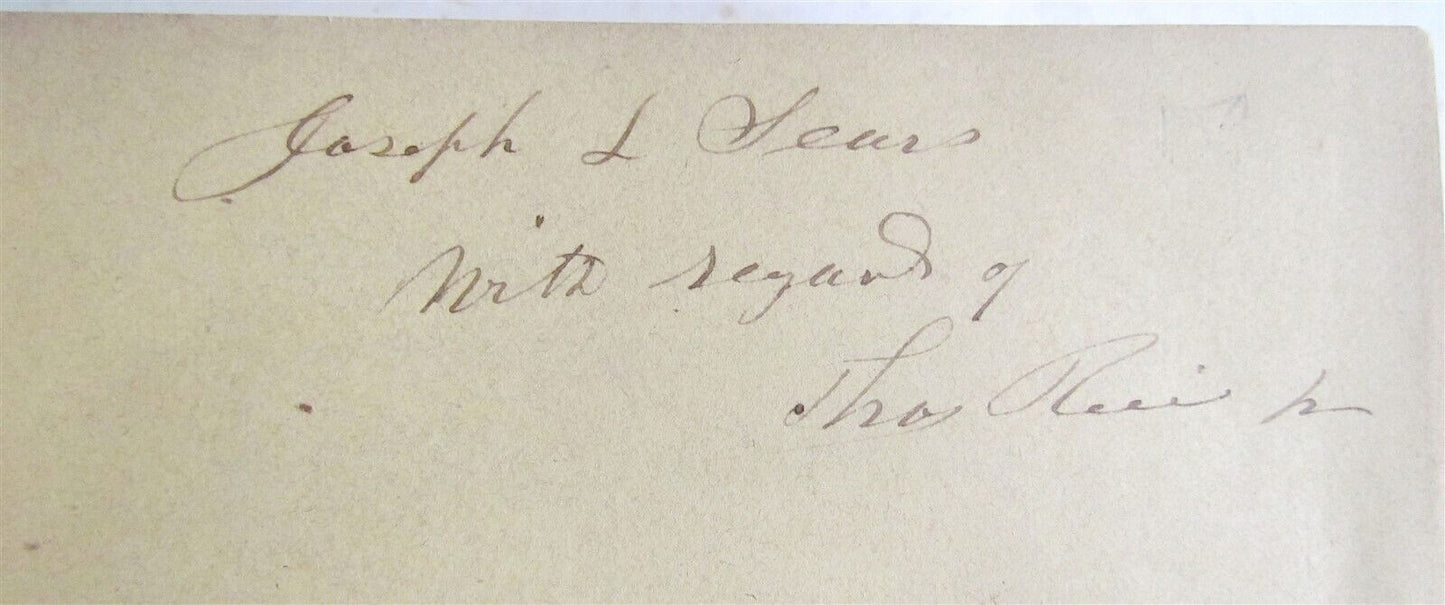 Joseph L Sears
With regard of
Thos